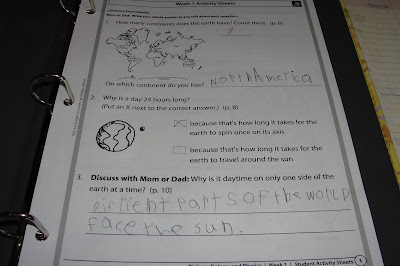 Week 1 Activity Sheets
1. How many continents does the earth have? Count them. (p. 6)
7
On which continent do you live? NorthAmerica
2. Why is a day 24 hours long?
(Put an X next to the correct answer.) (p. 8)
because that's how long it takes for the
earth to spin once on its axis
because that's how long it takes for the
earth to travel around the sun
3. Discuss with Mom or Dad: Why is it daytime on only one side of the
earth at a time? (p. 10)
parts of the world
face the sun.
Week 1 | Student Activity Sheets 1